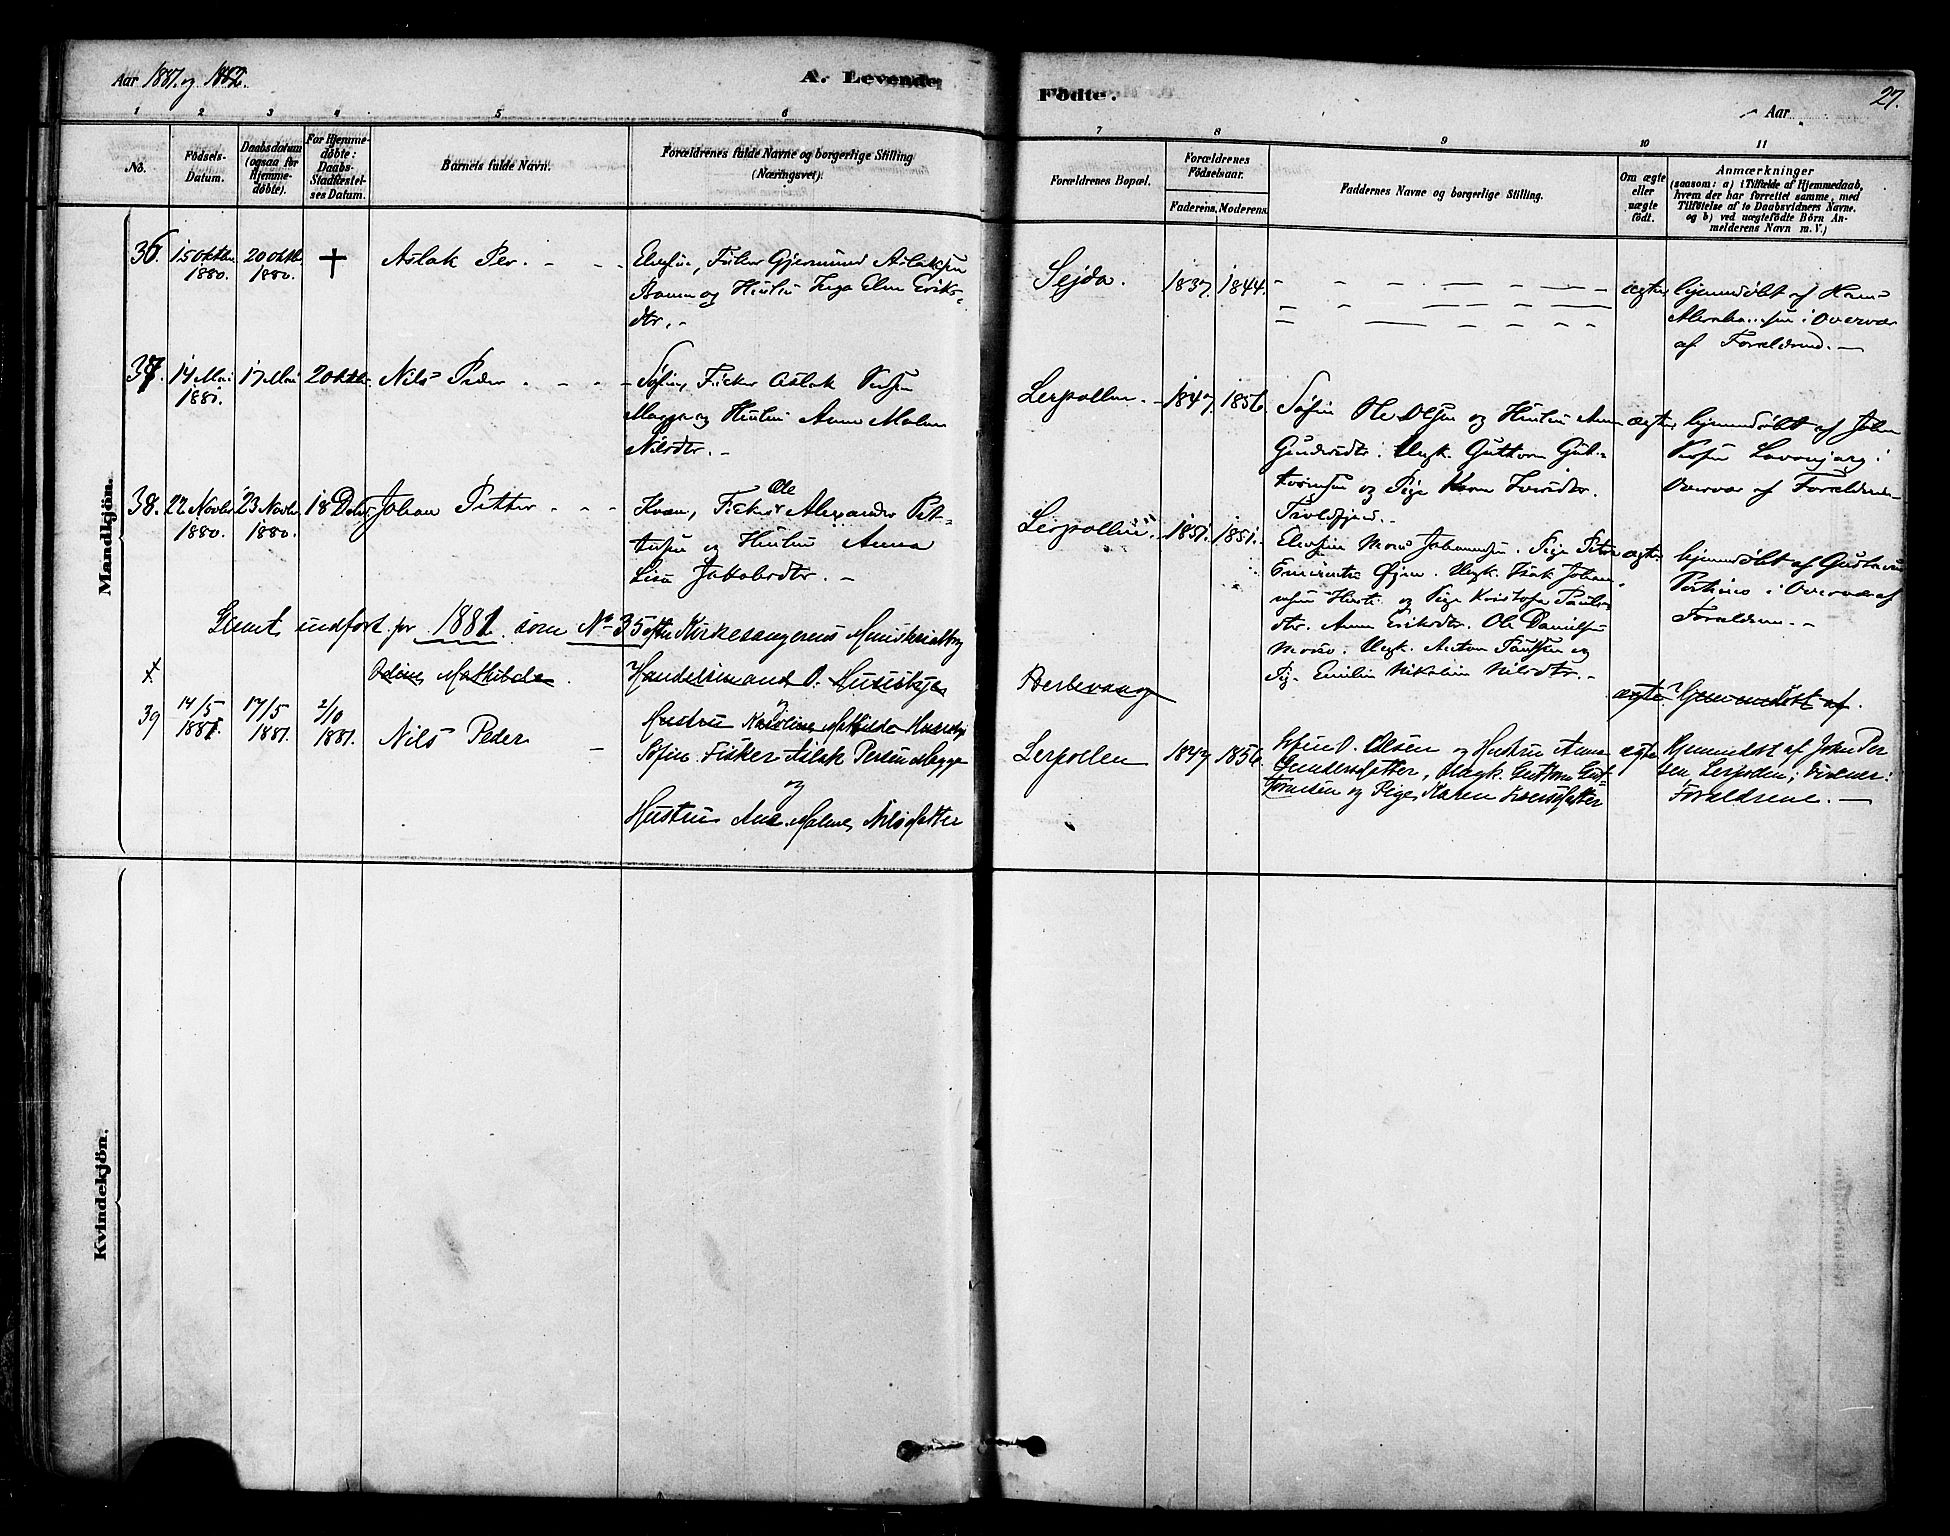 Aar 1881. og 1882.
A. Levende
Födte.
Aar
27.
1
2
3
4
5
6
7
8
9
10
11
No.
Födsels-
Datum.
Daabsdatum
(ogsaa for
Hjemme-
døbte).
For Hjemme-
døbte:
Daabs-
Stadfæstel-
ses Datum.
Barnets fulde Navn.
Forældrenes fulde Navne og borgerlige Stilling
(Næringsvei).
Forældrenes Bopæl.
Forældrenes
Födselsaar.
Faderens.
Moderens.
Faddernes Navne og borgerlige Stilling.
Om ægte
eller
uægte
födt.
Anmærkninger
(saasom: a) i Tilfælde af Hjemmedaab,
hvem der har forrettet samme, med
Tilföielse af to Daabsvidners Navne.
og b) ved uægtefödte Börn An-
melderens Navn m. V.)
Mandkjön.
36.
15 Oktbr.
1880.
20 Oktbr.
1880.
+
Aslak Per.
Gjermund Aslaksen
og Hustru Inga Elen Eriks-
dtr.
Sejda.
1837.
1844.
ægte
hjemmedöbt af Hans
i Overvær
af Forældrene.
37.
14 Mai
1881.
17 Mai
2 Oktbr.
Nils Peder
Søfin, Fisker Aslak Persen
Magga og Hustru Anne Malene
Nilsdtr.
Lerpollen.
1847.
1856.
Søfin Ole Olsen og Hustru Anne
Gundersdtr. Ungk. Guttorm Gut-
tormsen og Pige Karen Iversdtr.
Troldfjord.
ægte
hjemmedöbt af John
Persen i
Overvær af Forældrene
38.
22 Novbr.
1880.
23 Novbr.
1880.
18 Decbr.
Johan Petter
Kvæn, Fisker Ole Alexander Pet-
tersen og Hustru Anna
Lisa Jakobsdtr.
Lerpollen.
1851.
1851.
Johannesen. Pige
Ungk. Isak Johan-
og Pige Kristofa Pauls-
dtr. Anne Eriksdtr. Ole Danielsen
Ungk. Anton Paulsen og
Pig. Emilie Nikoline Nilsdtr.
ægte.
hjemmedöbt af Gustava
i Overvær af
Forældrene.
Glemt indfört for 1881 som No 35 efter Kirkesangerens Ministerialbog
+
Odine Mathilde
Handelsmand O. Husebye
og
Hustru Karoline Mathilde
Berlevaag
ægte
Hjemmedöbt af.
39
14/5
1881
17/5
1881
2/10
1881.
Nils Peder
Søfin. Fisker Aslak Persen Magga
og
Hustru Ane Malene Nilsdatter
Lerpollen
1847
1856
O. Olsen og Hustru Anne
Gundersdatter, Ungk. Guttorm Gut-
tormsen og Pige Karen Iversdatter
ægte
Hjemmedöbt af John Per
sen Lerpollen; Overvær:
Forældrene.
Kvindekjön.